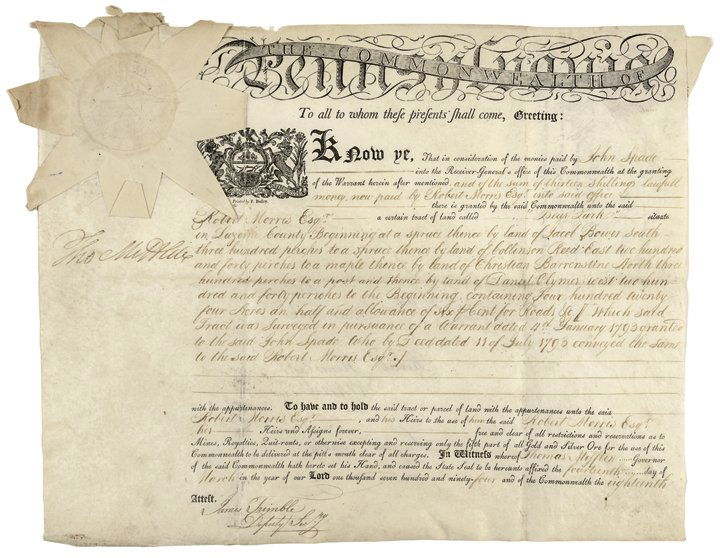 THE COMMONWEALTH OF
Pennsylvania
To all to whom these presents shall come, Greeting:
Know ye, That in consideration of the monies paid by John Spade
into the Receiver-General's office of this Commonwealth at the granting
of the Warrant herein after mentioned and of the sum of thirteen Shillings lawfull
money, now paid by Robert Morris Esqr. into said Office
Printed by F. Bailey.
there is granted by the said Commonwealth unto the said
Robert Morris Esqr. a certain tract of land called Park situate
in Luzerne County Beginning at a spruce thence by land of Jacob Bower South
three hundred perches to a spruce thence by land of Collinson Reed East two hundred
and forty perches to a maple thence by land of Christian North three
hundred perches to a post and thence by land of Daniel Clymer west two hun
dred and forty perches to the Beginning, containing four hundred twenty
four Acres an half and allowance of six P Cent for Roads &c. Which said
Tract was Surveyed in pursuance of a Warrant dated 4th January 1793 granted
to the said John Spade who by Deed dated 11 of July 1793 conveyed the same
to the said Robert Morris Esqr.
Tho Mifflin
with the appurtenances. To have and to hold the said tract or parcel of land with the appurtenances unto the said
Robert Morris Esqr. and his Heirs to the use of him the said Robert Morris Esqr.
his Heirs and Assigns forever, free and clear of all restrictions and reservations as to
Mines, Royalties, Quit-rents, or otherwise excepting and reserving only the fifth part of all Gold and Silver Ore for the use of this
Commonwealth to be delivered at the pit's mouth clear of all charges. In Witness whereof Thomas Mifflin Governor
of the said Commonwealth hath hereto set his Hand, and caused the State Seal to be hereunto affixed the fourteenth day of
March in the year of our Lord one thousand seven hundred and ninety-four and of the Commonwealth the eighteenth
Attest.
James Trimble
Deputy Secy